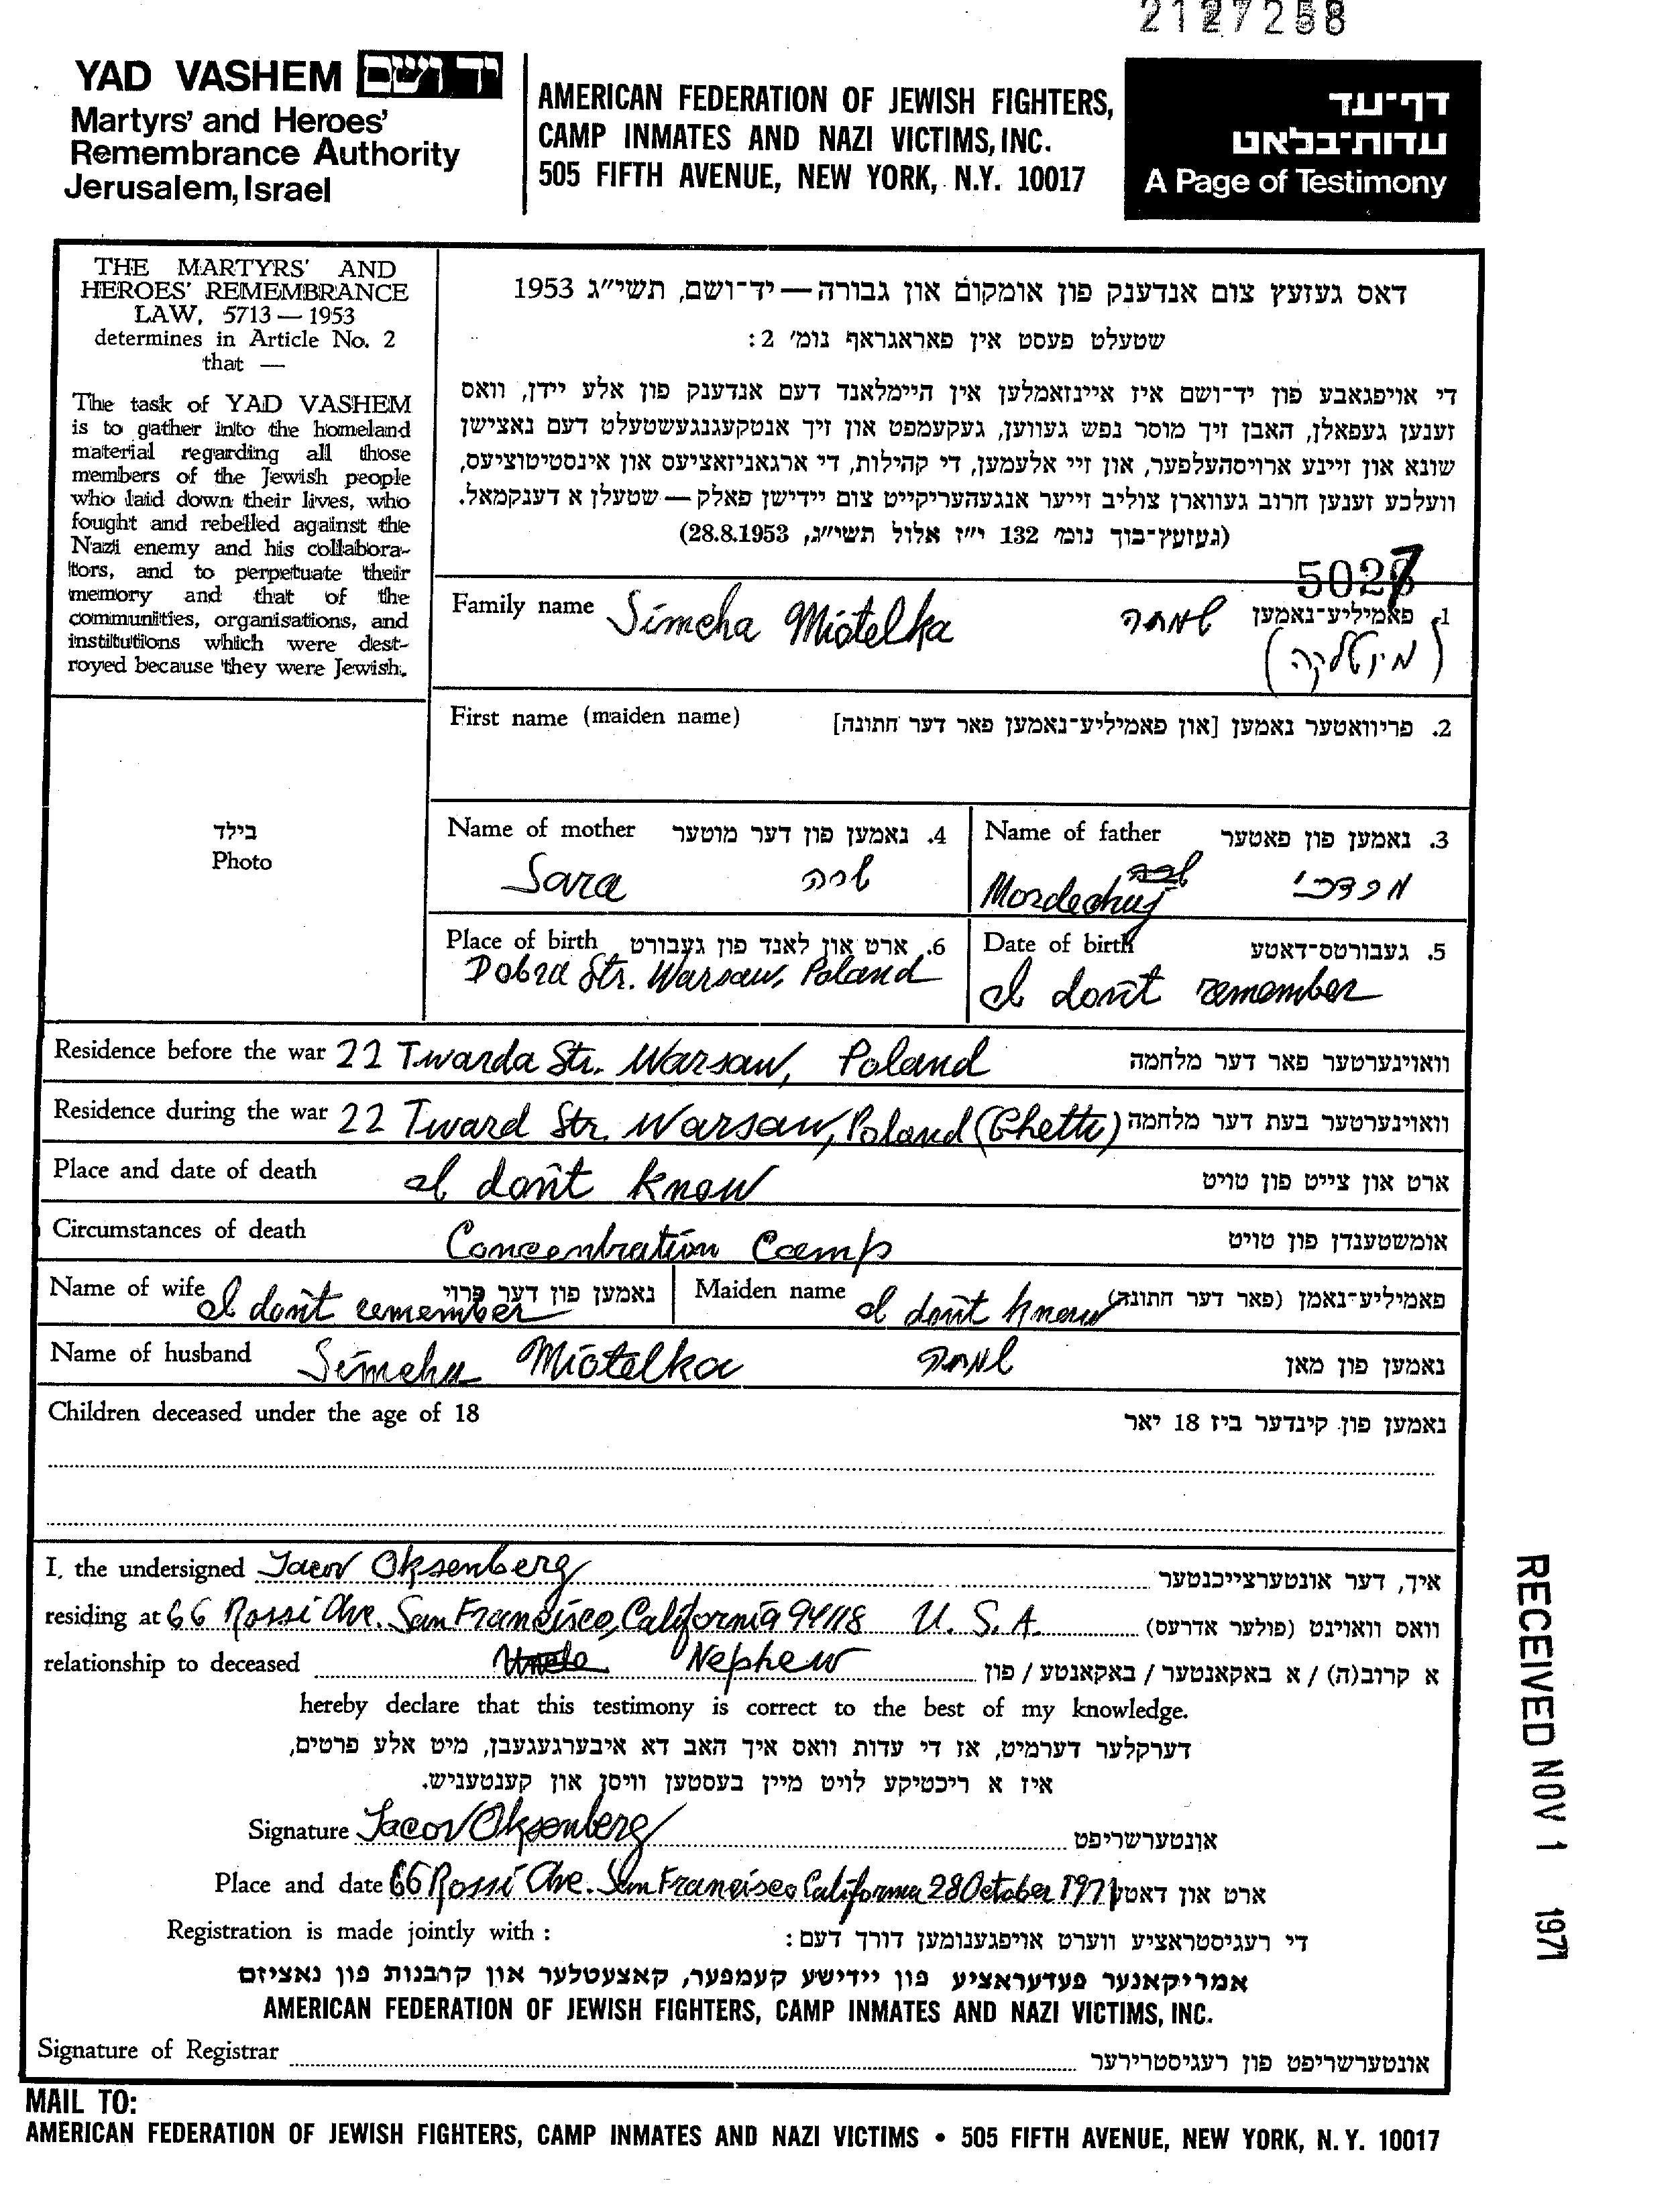 2127258
YAD VASHEM יד ושם
Martyrs' and Heroes'
Remembrance Authority
Jerusalem, Israel
AMERICAN FEDERATION OF JEWISH FIGHTERS,
CAMP INMATES AND NAZI VICTIMS, INC.
505 FIFTH AVENUE, NEW YORK, N.Y. 10017
דף-עד
עדות-בלאט
A Page of Testimony
THE MARTYRS' AND
HEROES' REMEMBRANCE
LAW, 5713 — 1953
determines in Article No. 2
that —
The task of YAD VASHEM
is to gather into the homeland
material regarding all those
members of the Jewish people
who laid down their lives, who
fought and rebelled against the
Nazi enemy and his collabora-
tors, and to perpetuate their
memory and that of the
communities, organisations, and
institutions which were dest-
royed because they were Jewish.
דאס געזעץ צום אנדענק פון אומקום און גבורה — יד-ושם, תשי"ג 1953
שטעלט פעסט אין פאראגראף נומ' 2:
די אויפגאבע פון יד-ושם איז איינזאמלען אין היימלאנד דעם אנדענק פון אלע יידן, וואס
זענען געפאלן, האבן זיך מוסר נפש געווען, געקעמפט און זיך אנטקעגנגעשטעלט דעם נאצישן
שונא און זיינע ארויסהעלפער, און זיי אלעמען, די קהילות, די ארגאניזאציעס און אינסטיטוציעס,
וועלכע זענען חרוב געווארן צוליב זייער אנגעהעריקייט צום יידישן פאלק — שטעלן א דענקמאל.
(געזעץ-בוך נומ' 132 י"ז אלול תשי"ג, 28.8.1953)
5027
Family name Simcha Miotelka שמחה 1. פאמיליע-נאמען
(מיוטלקה)
First name (maiden name) 2. פריוואטער נאמען [און פאמיליע-נאמען פאר דער חתונה]
בילד
Photo
Name of mother 4. נאמען פון דער מוטער
Sara שרה
Name of father 3. נאמען פון פאטער
Mordechuj מרדכי
Place of birth 6. ארט און לאנד פון געבורט
Dobra Str. Warsaw, Poland
Date of birth 5. געבורטס-דאטע
I don't remember
Residence before the war 22 Twarda Str. Warsaw, Poland וואוינערטער פאר דער מלחמה
Residence during the war 22 Tward Str. Warsaw, Poland (Ghetto) וואוינערטער בעת דער מלחמה
Place and date of death I don't know ארט און צייט פון טויט
Circumstances of death Concentration Camp אומשטענדן פון טויט
Name of wife I don't remember נאמען פון דער פרוי
Maiden name I don't know פאמיליע-נאמן (פאר דער חתונה)
Name of husband Simcha Miotelka שמחה נאמען פון מאן
Children deceased under the age of 18 נאמען פון קינדער ביז 18 יאר
I, the undersigned Jacov Oksenberg איך, דער אונטערצייכנטער
residing at 66 Rossi Ave. San Francisco, California 94118 U. S. A. וואס וואוינט (פולער אדרעס)
relationship to deceased Uncle Nephew א קרוב(ה) / א באקאנטער / באקאנטע / פון
hereby declare that this testimony is correct to the best of my knowledge.
דערקלער דערמיט, אז די עדות וואס איך האב דא איבערגעגעבן, מיט אלע פרטים,
איז א ריכטיקע לויט מיין בעסטען וויסן און קענטעניש.
Signature Jacov Oksenberg אונטערשריפט
Place and date 66 Rossi Ave. San Francisco California 28 October 1971 ארט און דאטע
Registration is made jointly with : די רעגיסטראציע ווערט אויפגענומען דורך דעם:
אמריקאנער פעדעראציע פון יידישע קעמפער, קאצעטלער און קרבנות פון נאציזם
AMERICAN FEDERATION OF JEWISH FIGHTERS, CAMP INMATES AND NAZI VICTIMS, INC.
Signature of Registrar אונטערשריפט פון רעגיסטרירער
MAIL TO:
AMERICAN FEDERATION OF JEWISH FIGHTERS, CAMP INMATES AND NAZI VICTIMS • 505 FIFTH AVENUE, NEW YORK, N. Y. 10017
RECEIVED NOV 1 1971